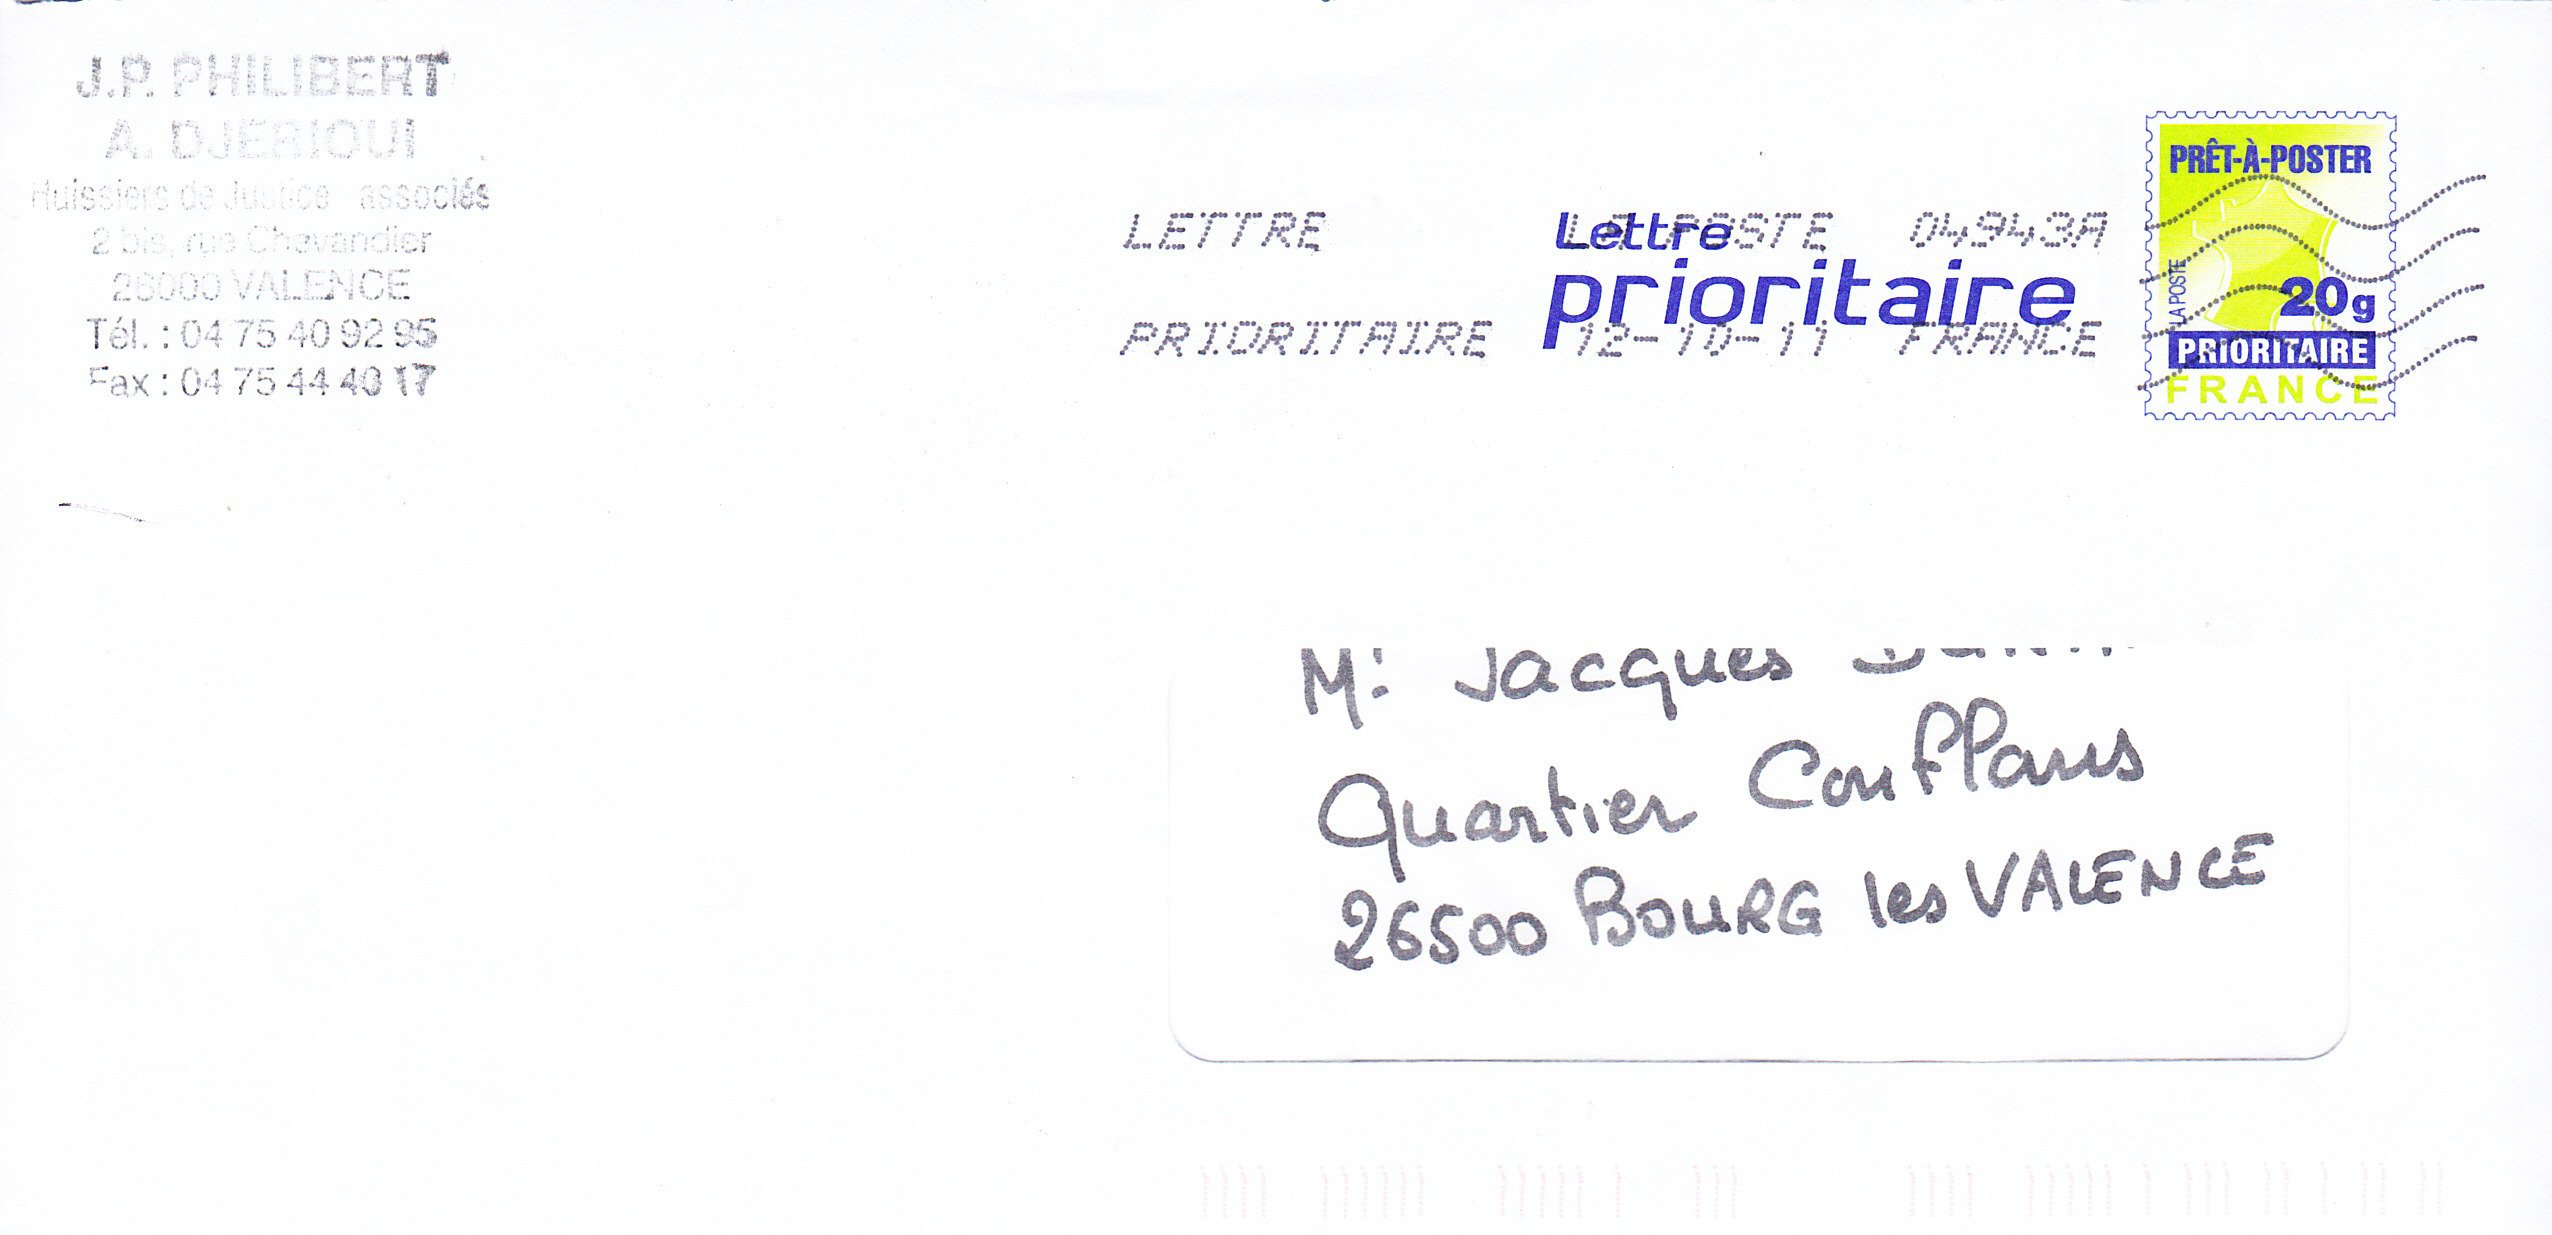 J.P. PHILIBERT
A. DJERIOUI
Huissiers de Justice associés
2 bis, rue Chevandier
26000 VALENCE
Tél. : 04 75 40 92 95
Fax : 04 75 44 40 17
LETTRE LA POSTE 04943A
PRIORITAIRE 12-10-11 FRANCE
Lettre
prioritaire
PRÊT-À-POSTER
LA POSTE
20g
PRIORITAIRE
FRANCE
Mr Jacques
Quartier Conflans
26500 BOURG les VALENCE